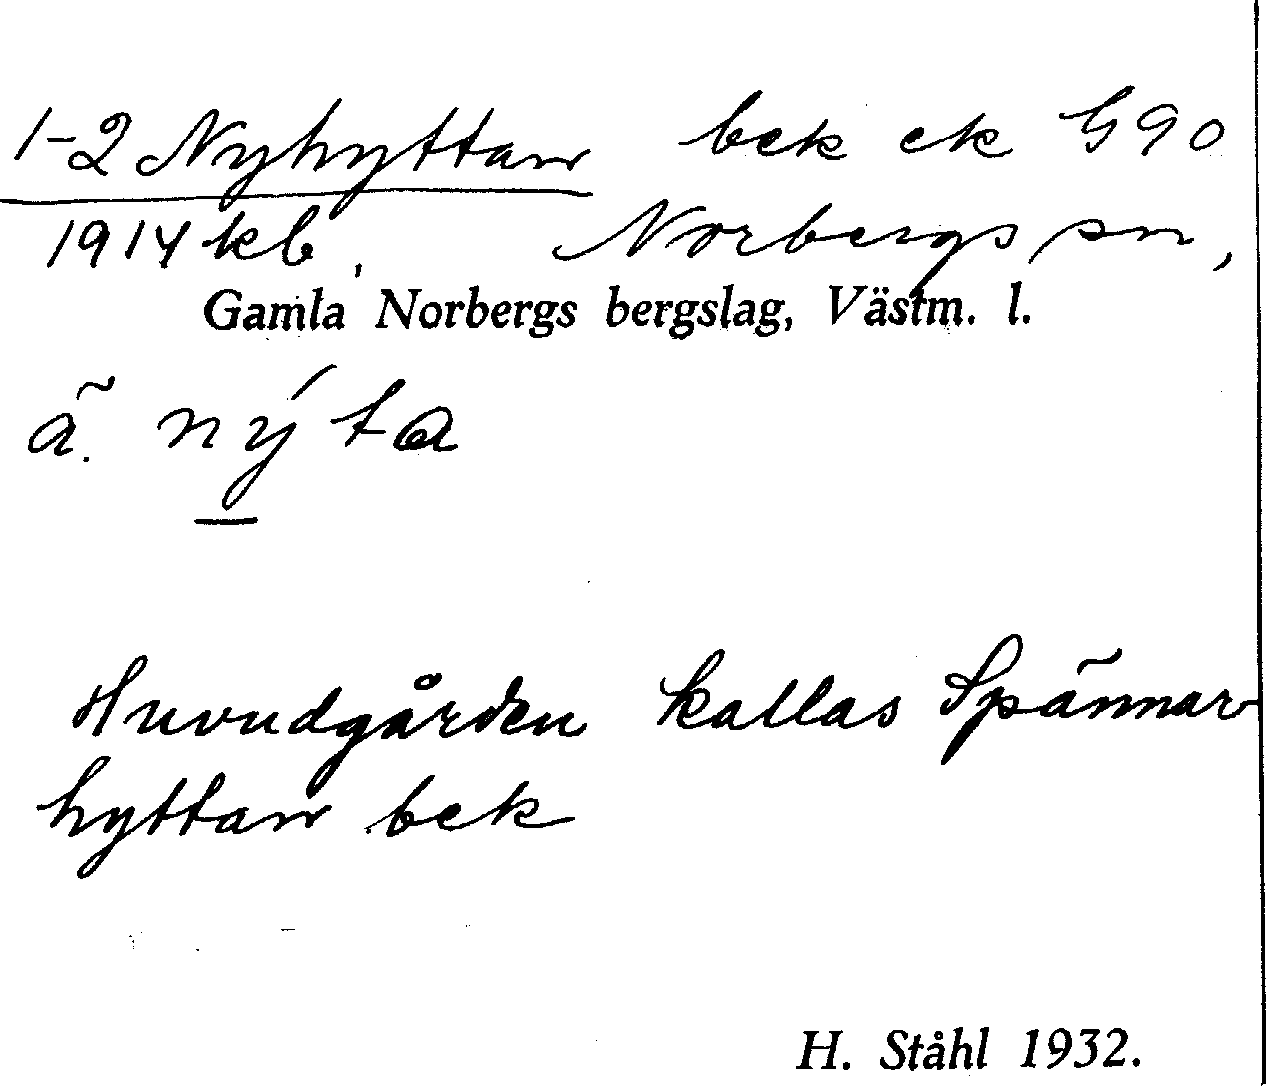 1-2 Nyhyttan bek ek G90
1914 kb, Norbergs sn,
Gamla Norbergs bergslag, Västm. l.
ã. nýta
Huvudgården kallas Spännar
hyttan bek
H. Ståhl 1932.